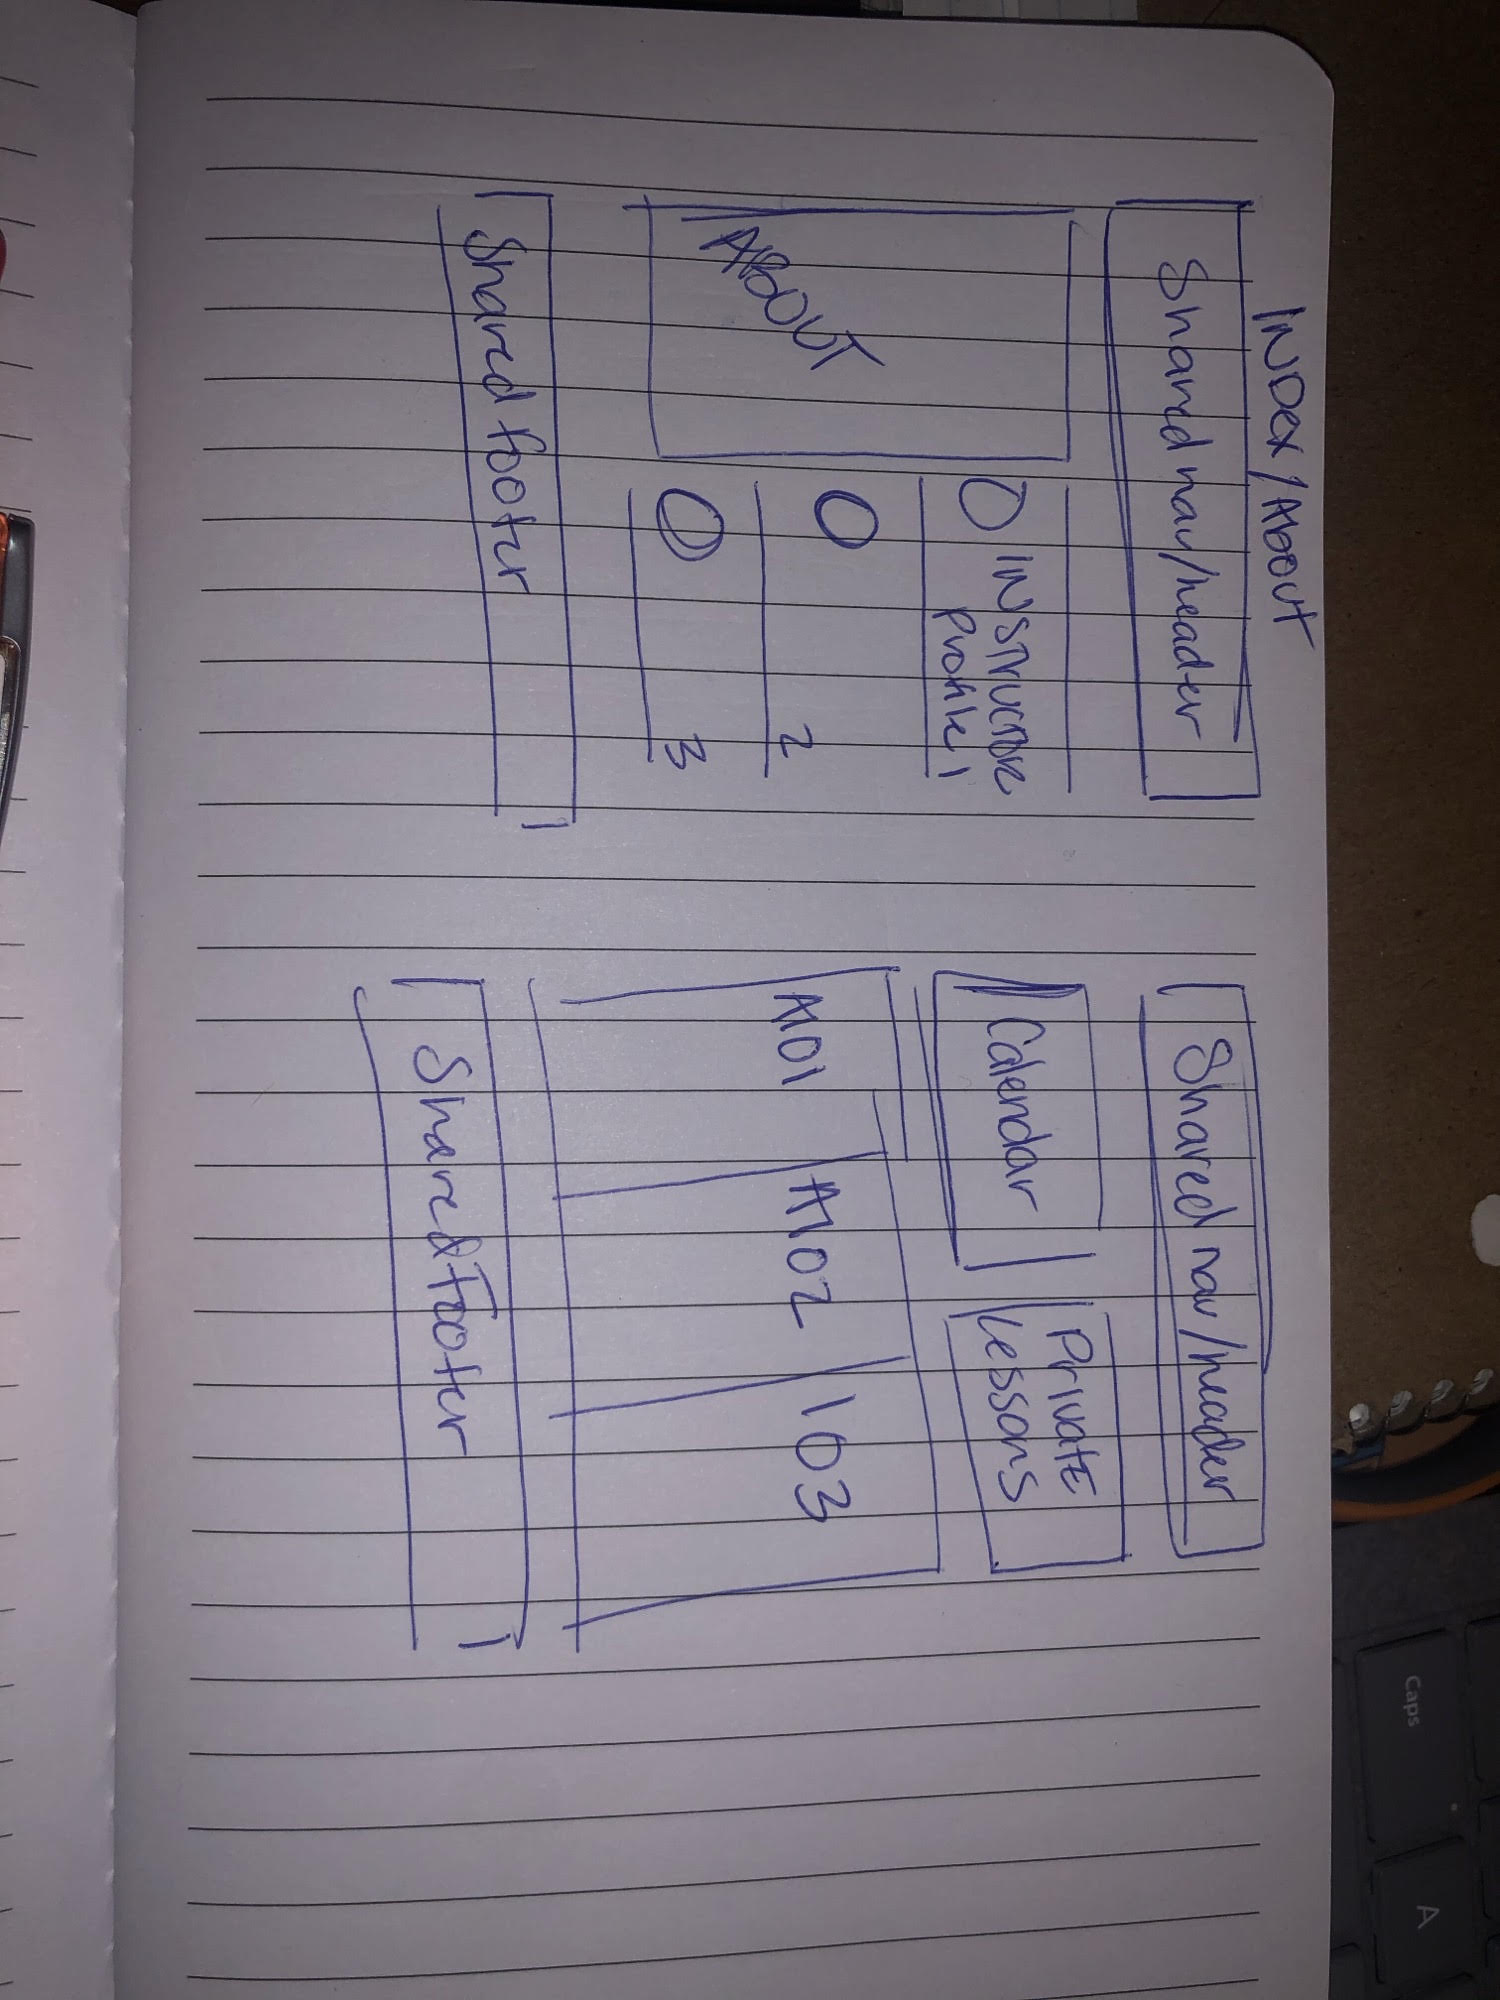 INDEX/About
Shared nav/header
ABOUT
INSTRUCTOR
Profile 1
2
3
Shared footer
Shared nav/header
Calendar
Private
Lessons
A101
A102
103
Shared Footer
Caps
A